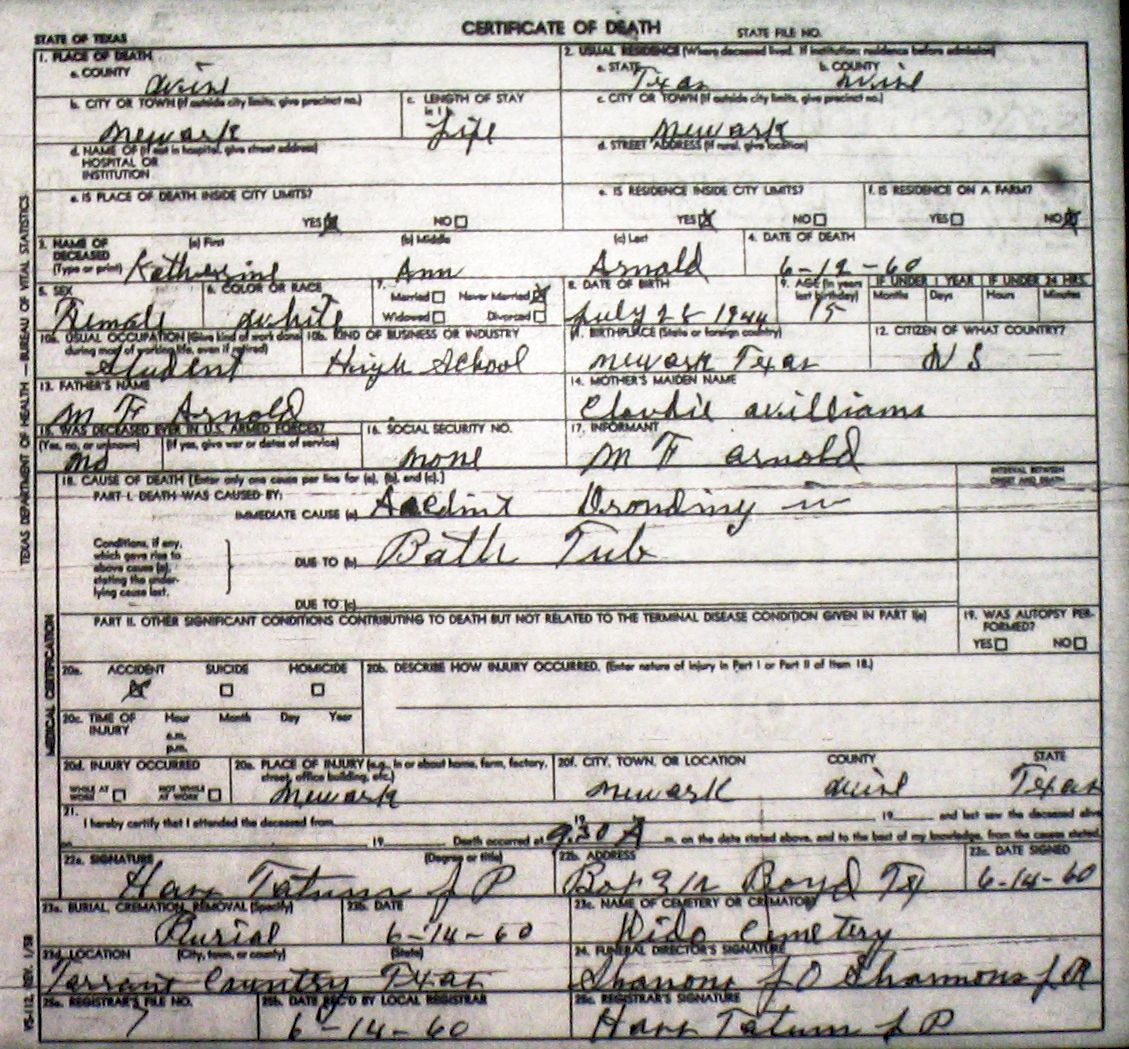 STATE OF TEXAS CERTIFICATE OF DEATH STATE FILE NO.
TEXAS DEPARTMENT OF HEALTH — BUREAU OF VITAL STATISTICS
1. PLACE OF DEATH
a. COUNTY Wise
2. USUAL RESIDENCE (Where deceased lived. If institution: residence before admission)
a. STATE Texas b. COUNTY Wise
b. CITY OR TOWN (If outside city limits, give precinct no.) Newark
c. LENGTH OF STAY in 1 b Life
c. CITY OR TOWN (If outside city limits, give precinct no.) Newark
d. NAME OF (If not in hospital, give street address)
HOSPITAL OR
INSTITUTION
d. STREET ADDRESS (If rural, give location)
e. IS PLACE OF DEATH INSIDE CITY LIMITS?
YES ☒ NO ☐
e. IS RESIDENCE INSIDE CITY LIMITS?
YES ☒ NO ☐
f. IS RESIDENCE ON A FARM?
YES ☐ NO ☒
3. NAME OF DECEASED (Type or print)
(a) First (b) Middle (c) Last
Katherine Ann Arnold
4. DATE OF DEATH
6-12-60
5. SEX Female
6. COLOR OR RACE White
7. Married ☐ Never Married ☒
Widowed ☐ Divorced ☐
8. DATE OF BIRTH July 28 1944
9. AGE (In years last birthday) 15
IF UNDER 1 YEAR Months Days
IF UNDER 24 HRS. Hours Minutes
10a. USUAL OCCUPATION (Give kind of work done during most of working life, even if retired) Student
10b. KIND OF BUSINESS OR INDUSTRY High School
11. BIRTHPLACE (State or foreign country) Newark Texas
12. CITIZEN OF WHAT COUNTRY? U S
13. FATHER'S NAME M F Arnold
14. MOTHER'S MAIDEN NAME Claudie Williams
15. WAS DECEASED EVER IN U.S. ARMED FORCES?
(Yes, no, or unknown) (If yes, give war or dates of service)
No
16. SOCIAL SECURITY NO. None
17. INFORMANT M F Arnold
MEDICAL CERTIFICATION
18. CAUSE OF DEATH [Enter only one cause per line for (a), (b), and (c).]
INTERVAL BETWEEN ONSET AND DEATH
PART I. DEATH WAS CAUSED BY:
IMMEDIATE CAUSE (a) Accdint Dronding in
Conditions, if any, which gave rise to above cause (a), stating the underlying cause last.
DUE TO (b) Bath Tub
DUE TO (c)
PART II. OTHER SIGNIFICANT CONDITIONS CONTRIBUTING TO DEATH BUT NOT RELATED TO THE TERMINAL DISEASE CONDITION GIVEN IN PART I(a)
19. WAS AUTOPSY PERFORMED?
YES ☐ NO ☐
20a. ACCIDENT ☒ SUICIDE ☐ HOMICIDE ☐
20b. DESCRIBE HOW INJURY OCCURRED. (Enter nature of injury in Part I or Part II of Item 18.)
20c. TIME OF INJURY Hour Month Day Year
a.m.
p.m.
20d. INJURY OCCURRED
WHILE AT WORK ☐ NOT WHILE AT WORK ☐
20e. PLACE OF INJURY (e.g., in or about home, farm, factory, street, office building, etc.) Newark
20f. CITY, TOWN, OR LOCATION COUNTY STATE
Newark Wise Texas
21. I hereby certify that I attended the deceased from 19 19 and last saw the deceased alive
on 19 Death occurred at 9.30 A m. on the date stated above, and to the best of my knowledge, from the causes stated.
22a. SIGNATURE (Degree or title) Tatum J P
22b. ADDRESS Box 312 Boyd Tx
22c. DATE SIGNED 6-14-60
23a. BURIAL, CREMATION, REMOVAL (Specify) Burial
23b. DATE 6-14-60
23c. NAME OF CEMETERY OR CREMATORY Dido Cemetery
23d. LOCATION (City, town, or county) (State)
Tarrant Country Texas
24. FUNERAL DIRECTOR'S SIGNATURE
Shanons J O Shannons JR
25a. REGISTRAR'S FILE NO. 7
25b. DATE REC'D BY LOCAL REGISTRAR 6-14-60
25c. REGISTRAR'S SIGNATURE Tatum J P
VS-112, REV. 1/58